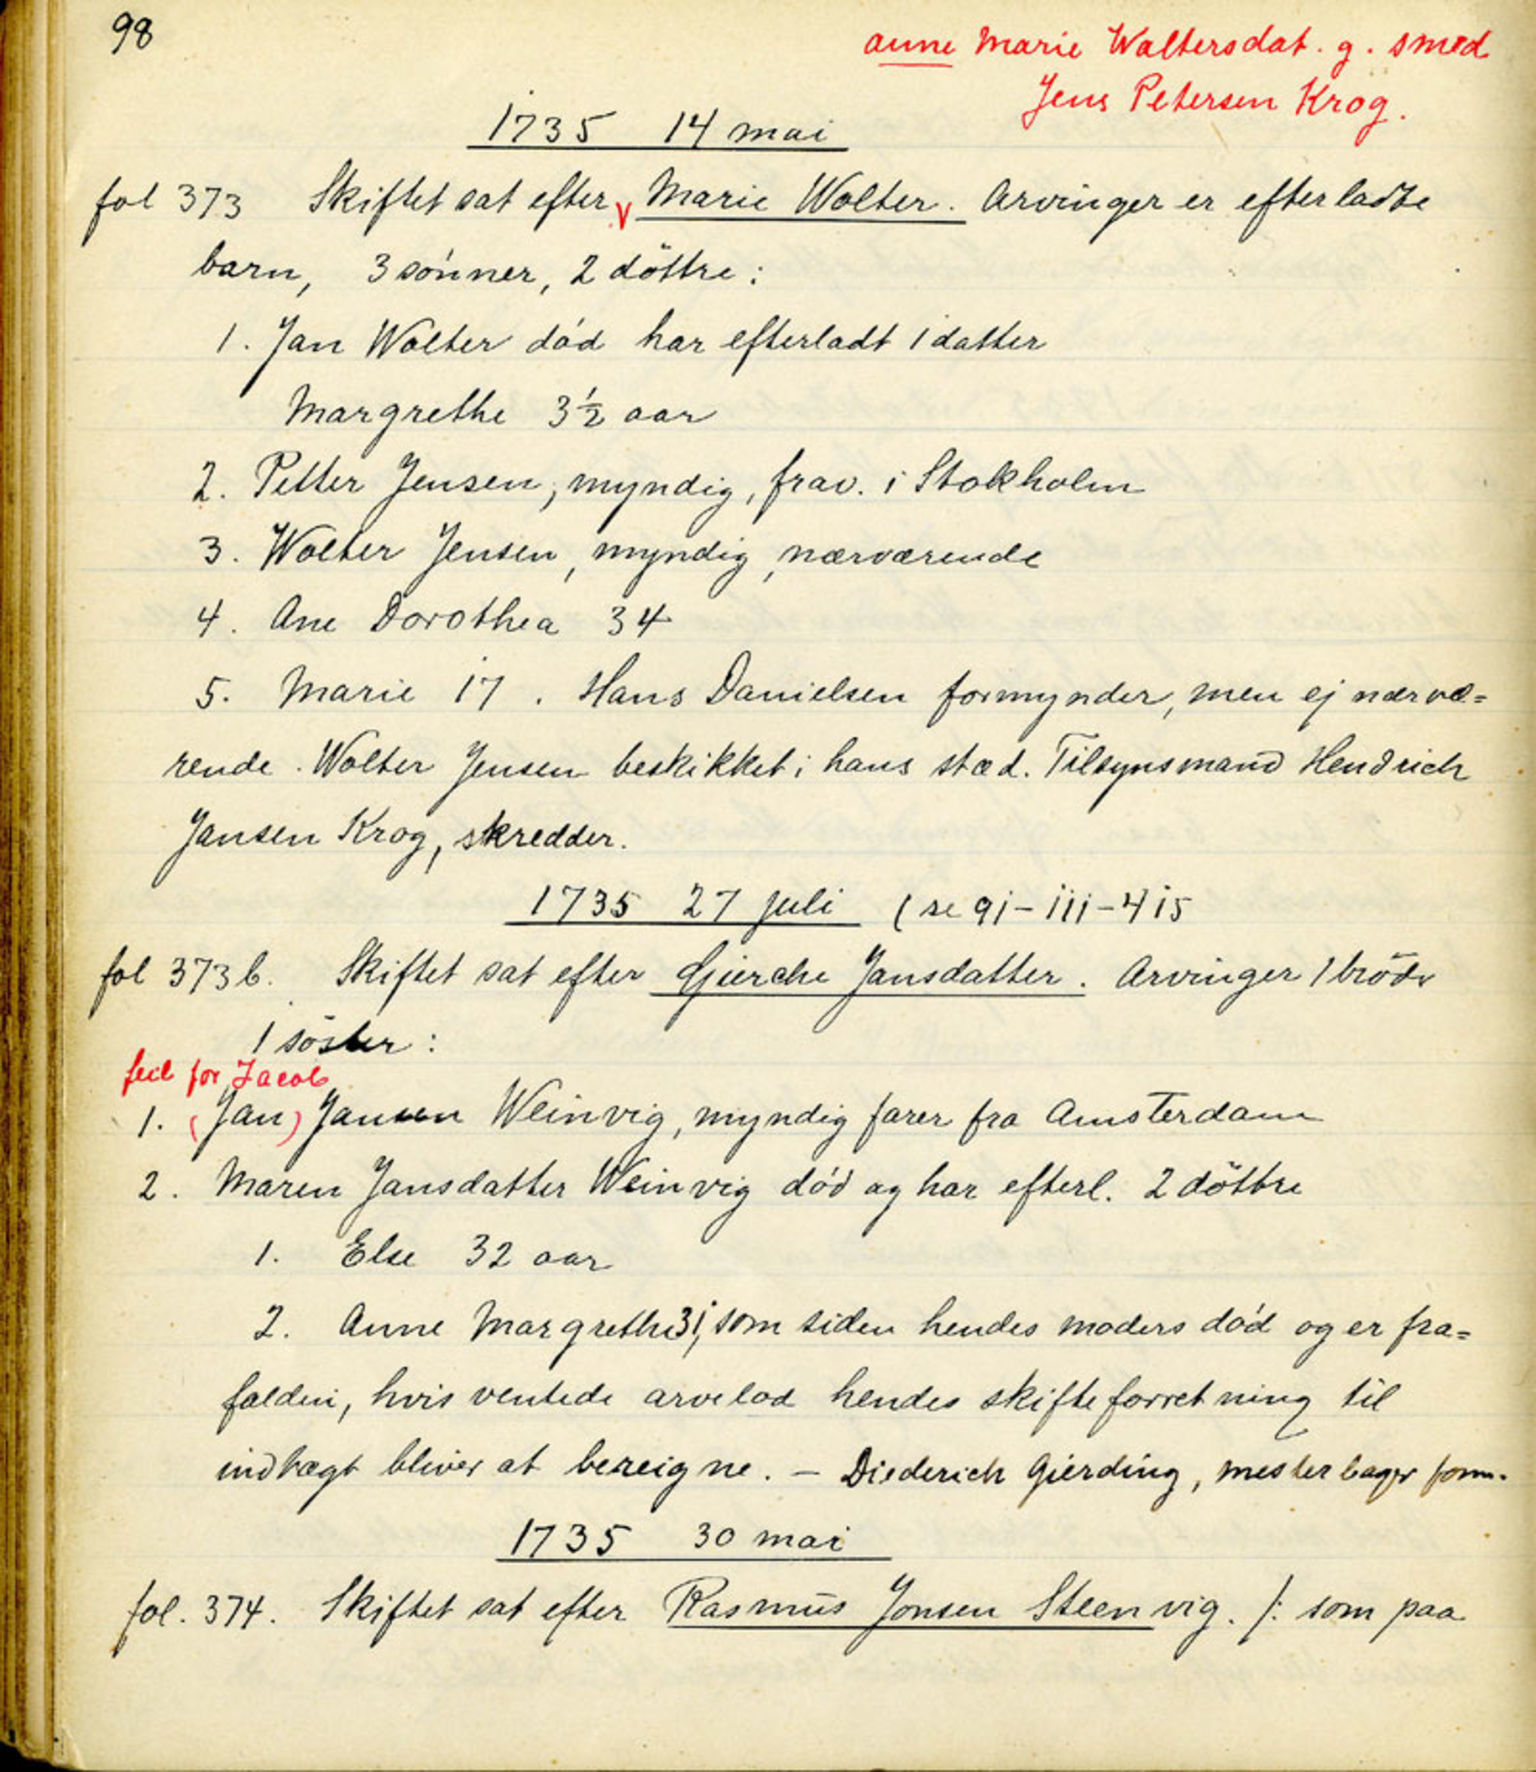 98
anne Marie Woltersdat. g. smed
Jens Petersen Krog.
1735 14 mai
fol 373 Skiftet sat efter v Marie Wolter. Arvinger er efterladte
barn, 3 sónner, 2 döttre:
1. Jan Wolter dód har efterladt 1 datter
Margrethe 3½ aar
2. Petter Jensen, myndig, frav. i Stokholm
3. Wolter Jensen, myndig, nærværende
4. Ane Dorothea 34
5. Marie 17. Hans Danielsen formynder, men ej nærvæ=
rende. Wolter Jensen beskikket i hans stæd. Tilsynsmand Hendrich
Jansen Krog, skredder.
1735 27 juli (se 91-111-415
fol 373 b. Skiftet sat efter Gierche Jansdatter. Arvinger 1 bröder
1 söster:
feil for Jacob
1. (Jan) Jansen Weinvig, myndig farer fra Amsterdam
2. Maren Jansdatter Weinvig dód og har efterl. 2 döttre
1. Else 32 aar
2. Anne Margrethe 31, som siden hendes moders dód og er fra=
falden, hvis ventede arvelod hendes skifteforretning til
indtægt bliver at bereigne. – Diederich Gierding, mesterbager form.
1735 30 mai
fol. 374. Skiftet sat efter Rasmus Jonsen Steenvig. /: som paa